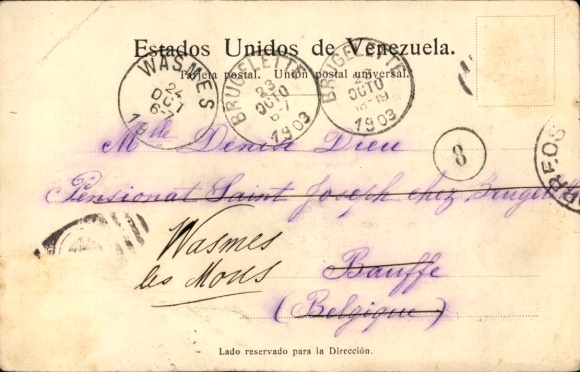 Estados Unidos de Venezuela.
Tarjeta postal. Unión postal universal.
WASMES
24
OCT
6-7
BRUGELETTE
23
OCTO
6-7
1903
BRUGELETTE
23
OCTO
18-19
1903
8
Mlle Denise Dieu
Pensionat Saint Joseph chez Brugelette
Wasmes
les Mons
Bauffe
(Belgique)
Lado reservado para la Dirección.